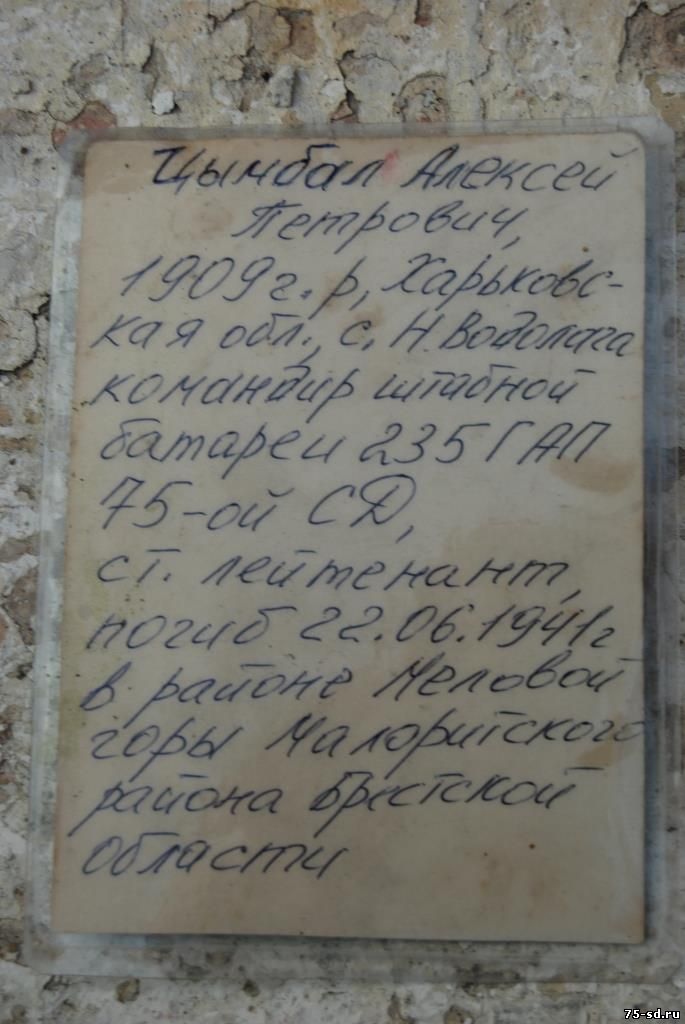 Цымбал Алексей
Петрович,
1909 г. р, Харьковс-
кая обл., с. Н. Водолага
командир штабной
батареи 235 ГАП
75-ой СД,
ст. лейтенант,
погиб 22.06.1941г
в районе Меловой
горы Малоритского
района Брестской
области
75-sd.ru